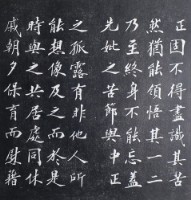 正因不得盡識其苦
然猶能領悟其一二
乃主終身不能忘蓋
先妣之苦節與
之孤露有非他人所
能想像及之而於是
時與之共居處同休
戚朝夕保育而慰藉